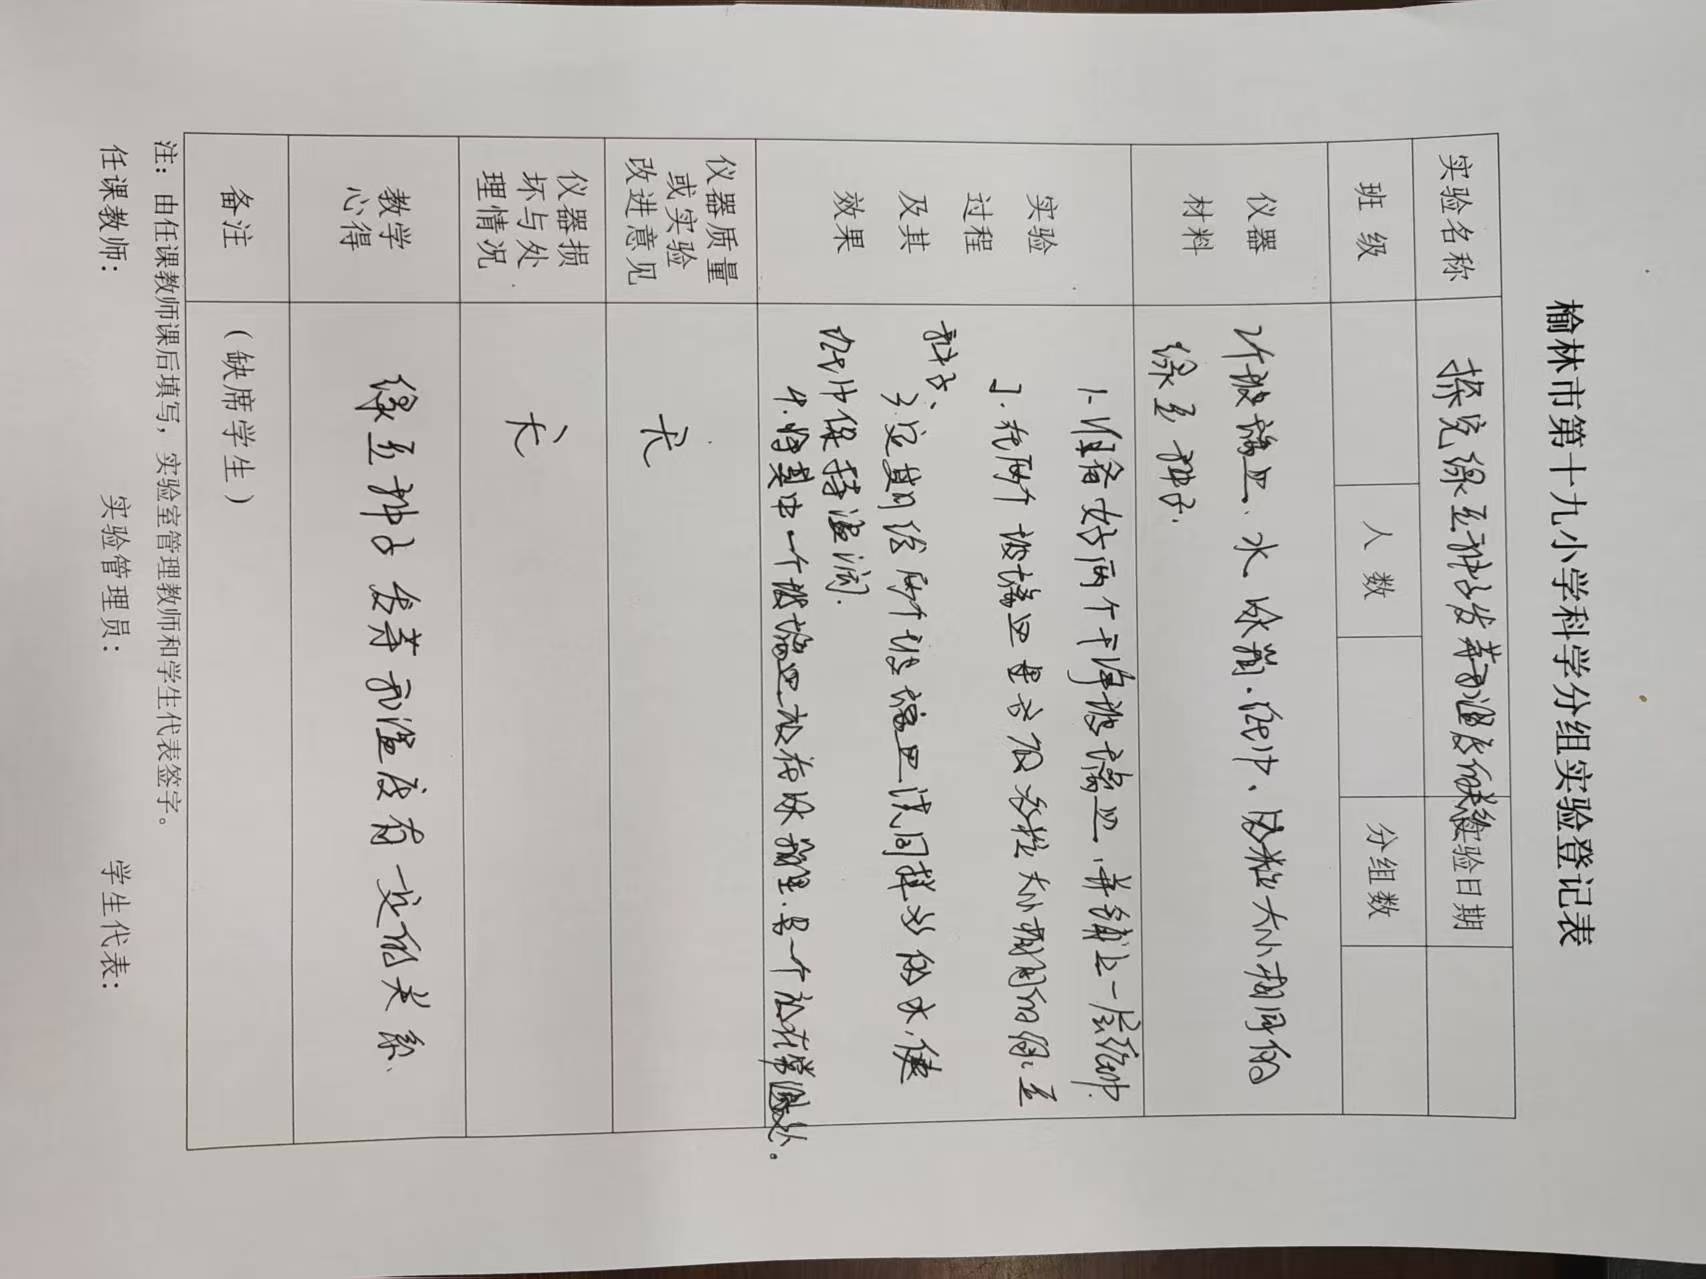 榆林市第十九小学科学分组实验登记表
实验名称 探究绿豆种子发芽和温度的关系 实验日期
班级 人数 分组数
仪器材料
2个玻璃皿、水、冰箱、纸巾、数粒大小相同的
绿豆种子.
实验过程及其效果
1.准备好两个干净玻璃皿,并铺上一层纸巾.
2.在两个玻璃皿里各放数粒大小相同的绿豆
种子、
3.定期给两个玻璃皿浇同样多的水,使
纸巾保持湿润.
4.将其中一个玻璃皿放在冰箱里.另一个放在常温处。
仪器质量或实验改进意见
无
仪器损坏与处理情况
无
教学心得
绿豆种子发芽和温度有一定的关系.
备注 (缺席学生)
注:由任课教师课后填写,实验室管理教师和学生代表签字。
任课教师: 实验管理员: 学生代表: